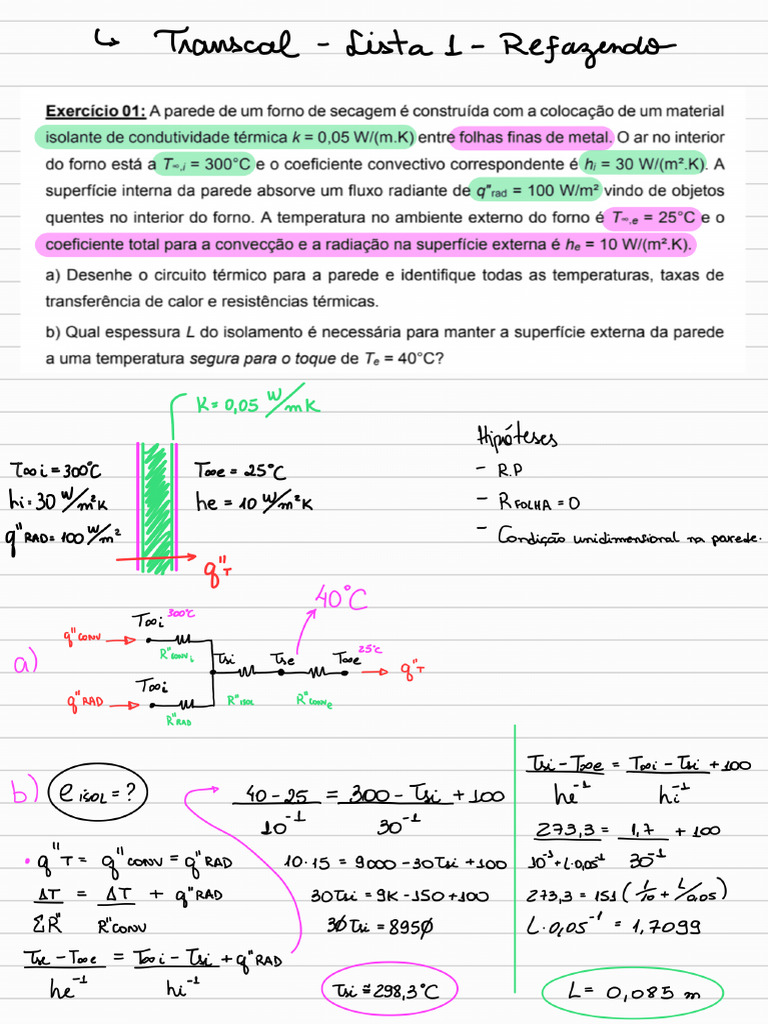 ↳ Transcal - Lista 1 - Refazendo
Exercício 01: A parede de um forno de secagem é construída com a colocação de um material
isolante de condutividade térmica k = 0,05 W/(m.K) entre folhas finas de metal. O ar no interior
do forno está a T∞,i = 300°C e o coeficiente convectivo correspondente é hi = 30 W/(m².K). A
superfície interna da parede absorve um fluxo radiante de q"rad = 100 W/m² vindo de objetos
quentes no interior do forno. A temperatura no ambiente externo do forno é T∞,e = 25°C e o
coeficiente total para a convecção e a radiação na superfície externa é he = 10 W/(m².K).
a) Desenhe o circuito térmico para a parede e identifique todas as temperaturas, taxas de
transferência de calor e resistências térmicas.
b) Qual espessura L do isolamento é necessária para manter a superfície externa da parede
a uma temperatura segura para o toque de Te = 40°C?
K = 0,05 W/mK
T∞i = 300°C
hi = 30 W/m²K
q"RAD = 100 W/m²
T∞e = 25°C
he = 10 W/m²K
q"T
Hipóteses
- R.P
- RFOLHA = 0
- Condição unidimensional na parede.
a)
40°C
T∞i 300°C
q"CONV
R"CONVi
Tsi Tse T∞e 25°C
q"T
T∞i
q"RAD
R"RAD
R"ISOL R"CONVe
b) e ISOL = ?
• q"T = q"CONV = q"RAD
ΔT/ΣR" = ΔT/R"CONV + q"RAD
Tse - T∞e/he⁻¹ = T∞i - Tsi/hi⁻¹ + q"RAD
40 - 25/10⁻¹ = 300 - Tsi/30⁻¹ + 100
10·15 = 9000 - 30Tsi + 100
30Tsi = 9K - 150 + 100
30Tsi = 8950
Tsi ≅ 298,3°C
Tsi - T∞e/he⁻¹ = T∞i - Tsi/hi⁻¹ + 100
273,3/10⁻¹ + L·0,05⁻¹ = 1,7/30⁻¹ + 100
273,3 = 151 (1/10 + L/0,05)
L·0,05⁻¹ = 1,7099
L = 0,085 m